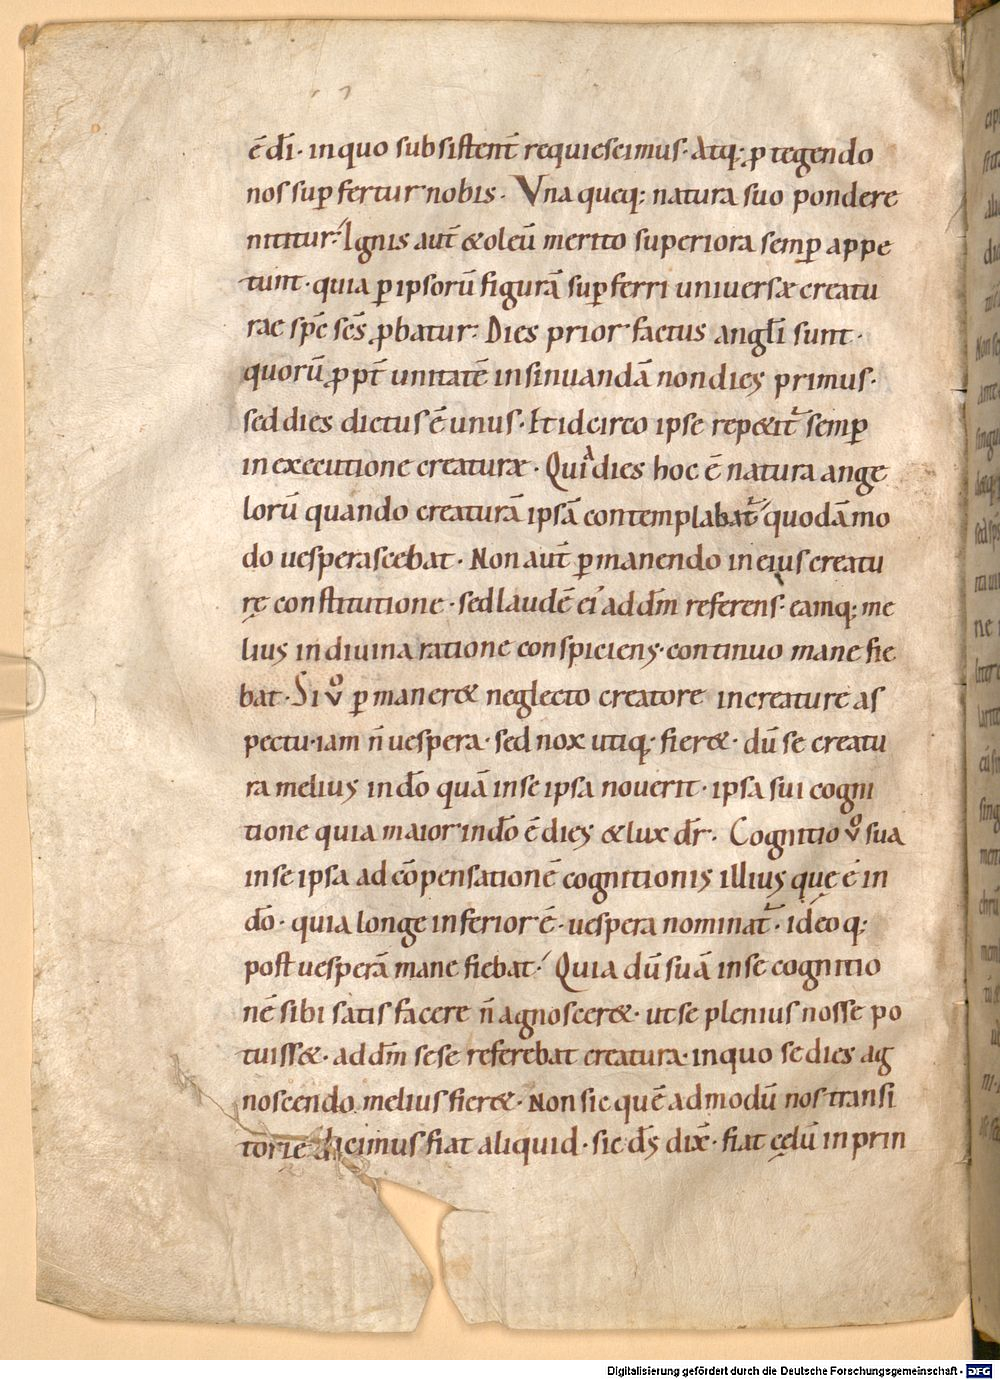 ē dī· in quo subsistent̄ requiescimus· Atq; ꝓtegendo
nos suꝑfertur nobis· Vna queq; natura suo pondere
nititur· Ignis aut̄ & oleū merito superiora semꝑ appe
tunt· quia ꝑ ipsorū figurā suꝑferri universæ creatu
rae sp̄c sc̄s ꝓbatur· Dies prior factus angl̄i sunt·
quorū ꝓpt̄ unitatē insinuandā non dies primus·
sed dies dictus ē unus· Et idcirco ipse repetit̄ semꝑ
in executione creaturæ· Qui dies hoc ē natura ange
lorū quando creaturā ipsā contemplabat̄ quodā mo
do uesperascebat· Non aut̄ ꝑmanendo in eius creatu
rę constitutione· sed laudē ei' ad dm̄ referens· eamq; me
lius in diuina ratione conspiciens· continuo mane fie
bat· Si v͛o ꝑmaner& neglecto creatore in creature as
pectu· iam n̄ uespera· sed nox utiq; fier&· dū se creatu
ra melius in dō quā in se ipsa nouerit· ipsa sui cogni
tione quia maior in dō ē dies & lux dr̄· Cognitio v͛o sua
in se ipsa ad cōpensationē cognitionis illius quę ē in
dō· quia longe inferior ē· uespera nominat̄· ideoq;
post uesperā mane fiebat· Quia dū suā in se cognitio
nē sibi satis facere n̄ agnoscer&· ut se plenius nosse po
tuiss&· ad dm̄ sese referebat creatura· in quo se dies ag
noscendo melius fier&· Non sic quē admodū nos transi
torie dicimus fiat aliquid· sic ds̄ dix̄· fiat cęlū in prin
Digitalisierung gefördert durch die Deutsche Forschungsgemeinschaft - DFG